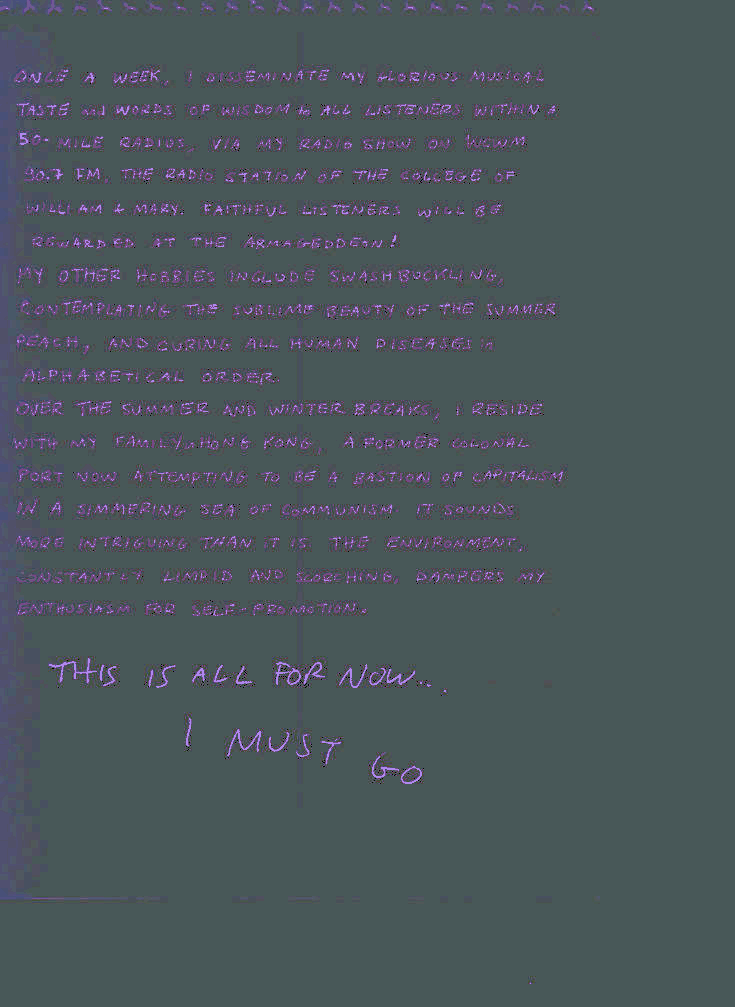 ONCE A WEEK, I DISSEMINATE MY GLORIOUS MUSICAL
TASTE and WORDS OF WISDOM to ALL LISTENERS WITHIN A
50-MILE RADIUS, VIA MY RADIO SHOW ON WCWM
90.7 FM, THE RADIO STATION OF THE COLLEGE OF
WILLIAM & MARY. FAITHFUL LISTENERS WILL BE
REWARDED AT THE ARMAGEDDEON!
MY OTHER HOBBIES INCLUDE SWASHBUCKLING,
CONTEMPLATING THE SUBLIME BEAUTY OF THE SUMMER
PEACH, AND CURING ALL HUMAN DISEASES in
ALPHABETICAL ORDER.
OVER THE SUMMER AND WINTER BREAKS, I RESIDE
WITH MY FAMILY in HONG KONG, A FORMER COLONAL
PORT NOW ATTEMPTING TO BE A BASTION OF CAPITALISM
IN A SIMMERING SEA OF COMMUNISM. IT SOUNDS
MORE INTRIGUING THAN IT IS. THE ENVIRONMENT,
CONSTANTLY LIMPID AND SCORCHING, DAMPERS MY
ENTHUSIASM FOR SELF-PROMOTION.
THIS IS ALL FOR NOW...
I MUST GO